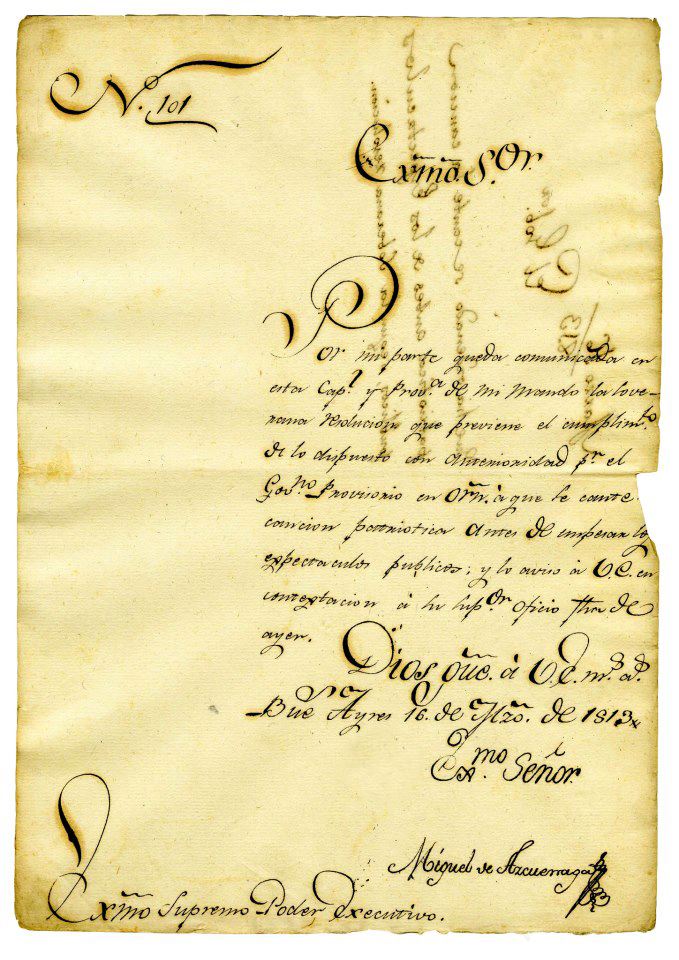 N.º 101
Exmõ. S.Or.
Por mi parte queda comunicada en
esta Cap.l y Prov.a de mi mando la sove-
rana resolucion que previene el cumplim.to
de lo dispuesto con anterioridad p.r el
Gov.no Provisorio en Orñ. à que se cante
cancion patriotica antes de empesar los
expectaculos publicos; y lo aviso à V.E. en
contextacion à su sup.or oficio fha de
ayer.
Dios güe. à V.E. m.s a.s
Bue.s Ayres 16. de Mzo. de 1813
Ex.mo Señor.
Miguel de Azcuenaga
Exmõ Supremo Poder Executivo.